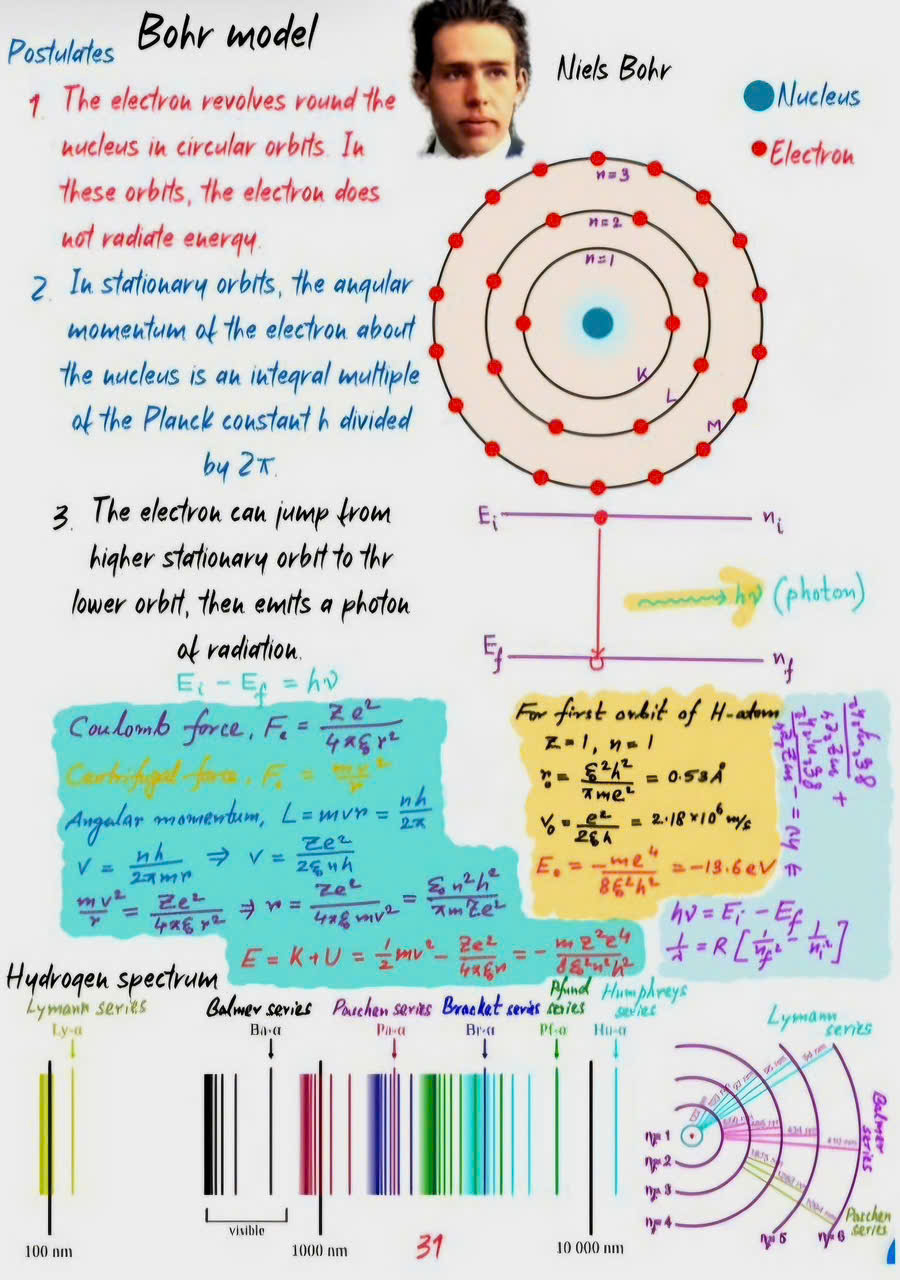 Bohr model
Postulates
Niels Bohr
Nucleus
Electron
1. The electron revolves round the
nucleus in circular orbits. In
these orbits, the electron does
not radiate energy.
2. In stationary orbits, the angular
momentum of the electron about
the nucleus is an integral multiple
of the Planck constant h divided
by 2π.
3. The electron can jump from
higher stationary orbit to thr
lower orbit, then emits a photon
of radiation.
Ei − Ef = hν
n=3
n=2
n=1
K
L
M
Ei
ni
hν (photon)
Ef
nf
Coulomb force, Fe = Ze²/4πε₀r²
Centrifugal force, Fc = mv²/r
Angular momentum, L = mvr = nh/2π
V = nh/2πmr ⇒ V = Ze²/2ε₀nh
mv²/r = Ze²/4πε₀r² ⇒ r = Ze²/4πε₀mv² = ε₀n²h²/πmZe²
E = K+U = ½mv² − Ze²/4πε₀r = − mZ²e⁴/8ε₀²n²h²
For first orbit of H-atom
Z=1, n=1
r₀ = ε₀²h²/πme² = 0.53Å
V₀ = e²/2ε₀h = 2.18×10⁶ m/s
E₀ = −me⁴/8ε₀²h² = −13.6eV
hν = Ei − Ef
1/λ = R[1/nf² − 1/ni²]
Hydrogen spectrum
Lymann series
Balmer series
Paschen series
Bracket series
Pfund series
Humphreys series
Ly-α
Ba-α
Pa-α
Br-α
Pf-α
Hu-α
visible
100 nm
1000 nm
10 000 nm
31
Lymann
series
Balmer
series
Paschen
series
n=1
n=2
n=3
n=4
n=5
n=6